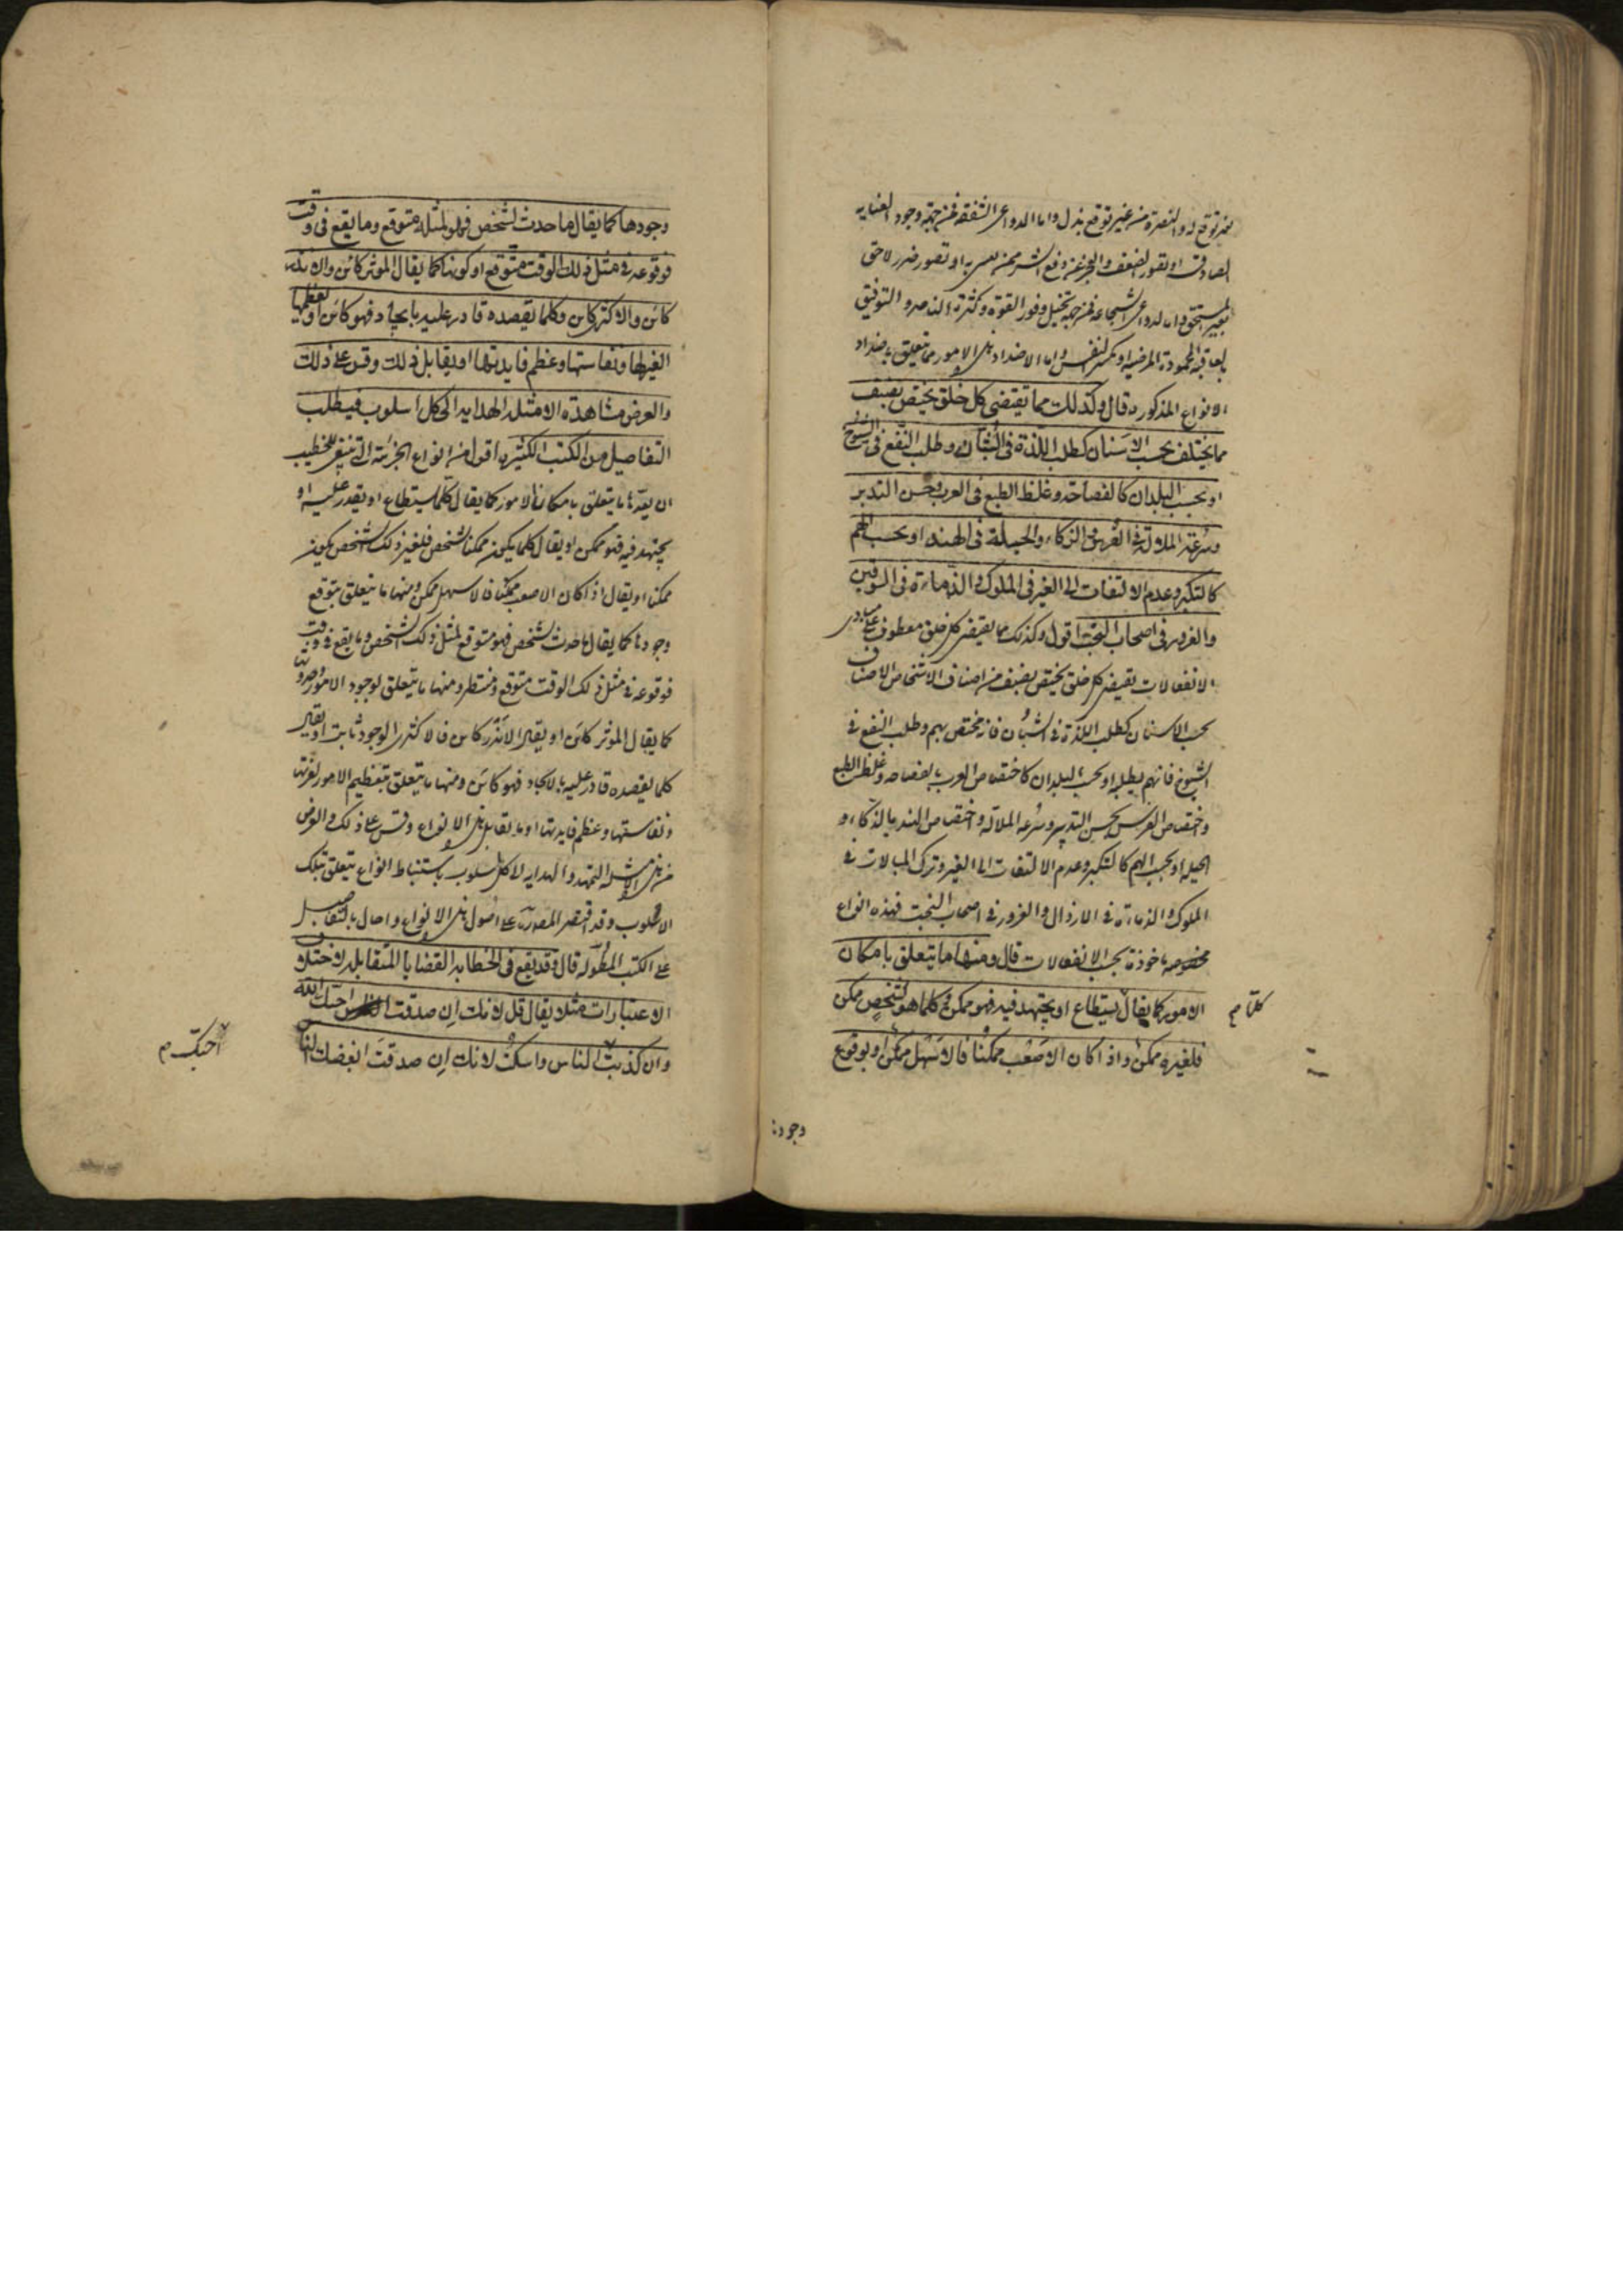 ممن توقع له والنصرة من غير توقع بذل واما الدواعى الشفقة فمن جهة وجود العنايه
الصادقة او تصور الضعف والعجز عن دفع الشر ممن به او تصور ضرر لاحق
بغير المستحق واما لدواعى الشجاعة فمن جهة تخيل وفور القوة وكثرة الناصر والتوفيق
بالعاقبة المحمودة المرضية او كبر النفس واما الاضداد تلك الامور مما يتعلق باضداد
الانواع المذكورة قال وكذلك مما تقتضى كل خلق يختص بصنف
مما يختلف بحسب الاسنان كطلب اللذة فى الشبان وطلب النفع فى الشيوخ
او بحسب البلدان كالفصاحة وغلظ الطبع فى العرب وحسن التدبير
وسرعة الملالة فى الفرس والذكاء والحيلة فى الهند او بحسب الهمم
كالتكبر وعدم الالتفات الى الغير فى الملوك والدناءة فى السوقين
والغرور فى اصحاب البخت اقول وكذلك ما يقتضى كل خلق معطوف على مبادى
الانفعالات يقتضى كل خلق يختص بصنف من اصناف الاشخاص الاصناف
بحسب الاسنان كطلب اللذة فى الشبان فانه مختص بهم وطلب النفع فى
الشيوخ فانهم يطلبه او بحسب البلدان كاختصاص العرب بالفصاحه وغلظ الطبع
واختصاص الفرس بحسن التدبير وسرعه الملالة واختصاص الهند بالذكاء و
الحيله او بحسب الهمم كالتكبر وعدم الالتفات الى الغير وترك المبالات فى
الملوك والدناءة فى الارذال والغرور فى اصحاب البخت فهذه انواع
مخصوصه ماخوذة بحسب الانفعالات قال ومنها ما يتعلق بامكان
الامور كما يقال يستطاع او يجتهد فيه فهو ممكن وكلما هو لشخص ممكن
كلما م
فلغيره ممكن واذا كان الاصعب ممكنا فالاسهل ممكن او بوقوع
وجودها
وجودها كما يقال ما حدث لشخص فهو لمثله متوقع وما يقع فى وقت
فوقوعه فى مثل ذلك الوقت متوقع او كونها كما يقال الموثر كائن والانذر
كائن والاكثر كائن وكلما يقصده قادر عليه بايجاد فهو كائن او تعظيمها
لغيرها ونفاستها وعظم فايدتها او يقابل ذلك وقس على ذلك
والغرض من هذه الامثلة الهداية الى كل اسلوب فيطلب
التفاصيل من الكتب الكثيرة اقول من انواع الجزئية التى ينبغى للخطيب
ان يعدها ما يتعلق بامكان الامور كما يقال كلما يستطاع او يقدر عليه او
يجتهد فيه فهو ممكن او يقال كلما يكون ممكنا لشخص فلغير ذلك الشخص يكون
ممكنا او يقال اذا كان الاصعب ممكنا فالاسهل ممكن ومنها ما يتعلق بتوقع
وجودها كما يقال ما حدث لشخص فهو متوقع لمثل ذلك الشخص وما يقع فى وقت
فوقوعه فى مثل ذلك الوقت متوقع ومنتظر ومنها ما يتعلق لوجود الامور وحدوثها
كما يقال الموثر كائن او يقال الانذر كائن فالاكثرى الوجود ثابت او يقال
كلما يقصده قادر عليه بالايجاد فهو كائن ومنها ما يتعلق بتعظيم الامور لغرتها
ونفاستها وعظم فايدتها او ما يقابل تلك الانواع وقس على ذلك والغرض
من تلك الامثلة التمهيد والهدايه لا كل اسلوب باستنباط انواع يتعلق بتلك
الاسلوب وقد اقتصر المصنف على اصول تلك الانواع واحال بالتفاصيل
على الكتب المطوله قال وقد يقع فى الخطابه القضايا المتقابله لاختلاف
الاعتبارات مثلا يقال قل لانك ان صدقت احبك الله
وان كذبت الناس واسكت لانك ان صدقت ابغضك الناس
احبك م